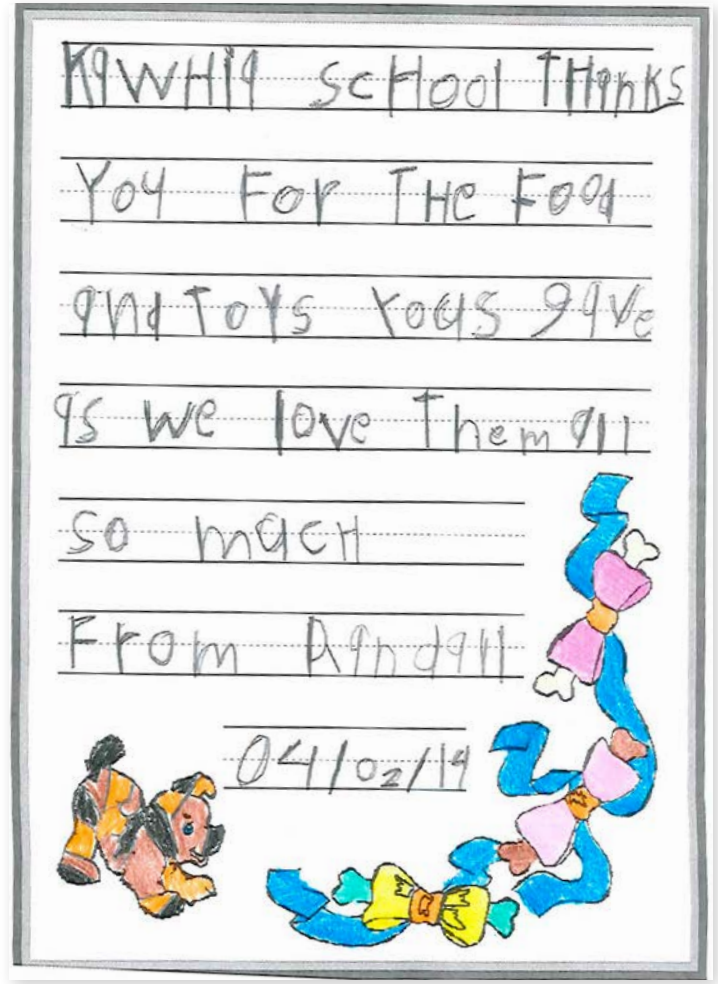 KaWHia ScHool THanks
You For THe Food
and Toys Yous gave
us we love Them all
so mucH
From Randall
04/02/19